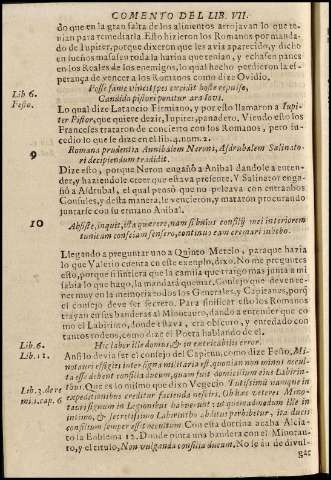 COMENTO DEL LIB. VII.
do que en la gran falta de los alimentos arrojavan lo que te-
nian para remediarla. Esto hizieron los Romanos por manda-
do de Iupiter, porque dixeron que les avia aparecido, y dicho
en sueños mañasen toda la harina que tenian, y echasen panes
en los Reales de los enemigos, lo qual hecho perdieron la es-
perança de vencer a los Romanos como dize Ovidio.
Posse fame vinci spes excidit hoste repulso,
Lib 6. Candido pistori ponitur ara Iovi.
Festo. Lo qual dize Latancio Firmiano, y por esto llamaron a Iupi-
ter Pistor, que quiere dezir, Iupiter, panadero. Viendo esto los
Franceses trataron de concierto con los Romanos, pero su-
cedio lo que le dize en el lib.4.num.2.
9 Romana prudentia Annibalem Neroni, Asdrubalem Salinato-
ri decipiendum tradidit.
Dize esto, porque Neron engañò a Anibal dandole a enten-
der, y haziendole creer que estava presente. Y Salinator enga-
ñò a Asdrubal, el qual pensò que no peleava con entrambos
Consules, y desta manera le vencieron, y mataron procurando
juntarse con su ermano Anibal.
10 Absiste, inquit, ista quærere, nam si huius consilij mei interiorem
tunicam consciam sensero, continuo eam cremari iubebo.
Llegando a preguntar uno a Quinto Metelo, paraque hazia
lo que Valerio cuenta en este exemplo, dixo. No me pregunteis
esto, porque si sintiera que la camisa que traigo mas junta a mi
sabia lo que hago, la mandara quemar. Consejo que deven te-
ner muy en la memoria todos los Generales, y Capitanes, porq
el consejo deve ser secreto. Para sinificar esto los Romanos
trayan en sus banderas al Minotauro, dando a entender que co-
mo el Labirinto, donde estava, era obscuro, y enredado con
tantos rodeos, como dize el Poeta hablando de el.
Lib. 6. Hic labor ille domus, & in extricabilis error.
Lib. 12. Ansi lo devia ser el consejo del Capitan, como dize Festo, Mi-
notauri effigies inter signa militaria est, quod non minus occul-
ta esse debent consilia ducum, quam fuit domicilium eius Labirin-
Lib. 3. de re thus. Que es lo mismo que dixo Vegecio. Tutissimũ namque in
mi. i. cap. 6 expeditionibus creditur facienda nesciri. Ob hoc veteres Mino-
tauri signum in Legionibus habuerunt: ut quemadmodum ille in
intimo, & secretissimo Labirintho abditus perhibetur, ita ducis
consilium semper esset occultum. Con esta doctrina acaba Alcia-
to la Emblema 12. Donde pinta una bandera con el Minotau-
ro, y el titulo, Non vulganda consilia ducum. No se an de divul-
gar